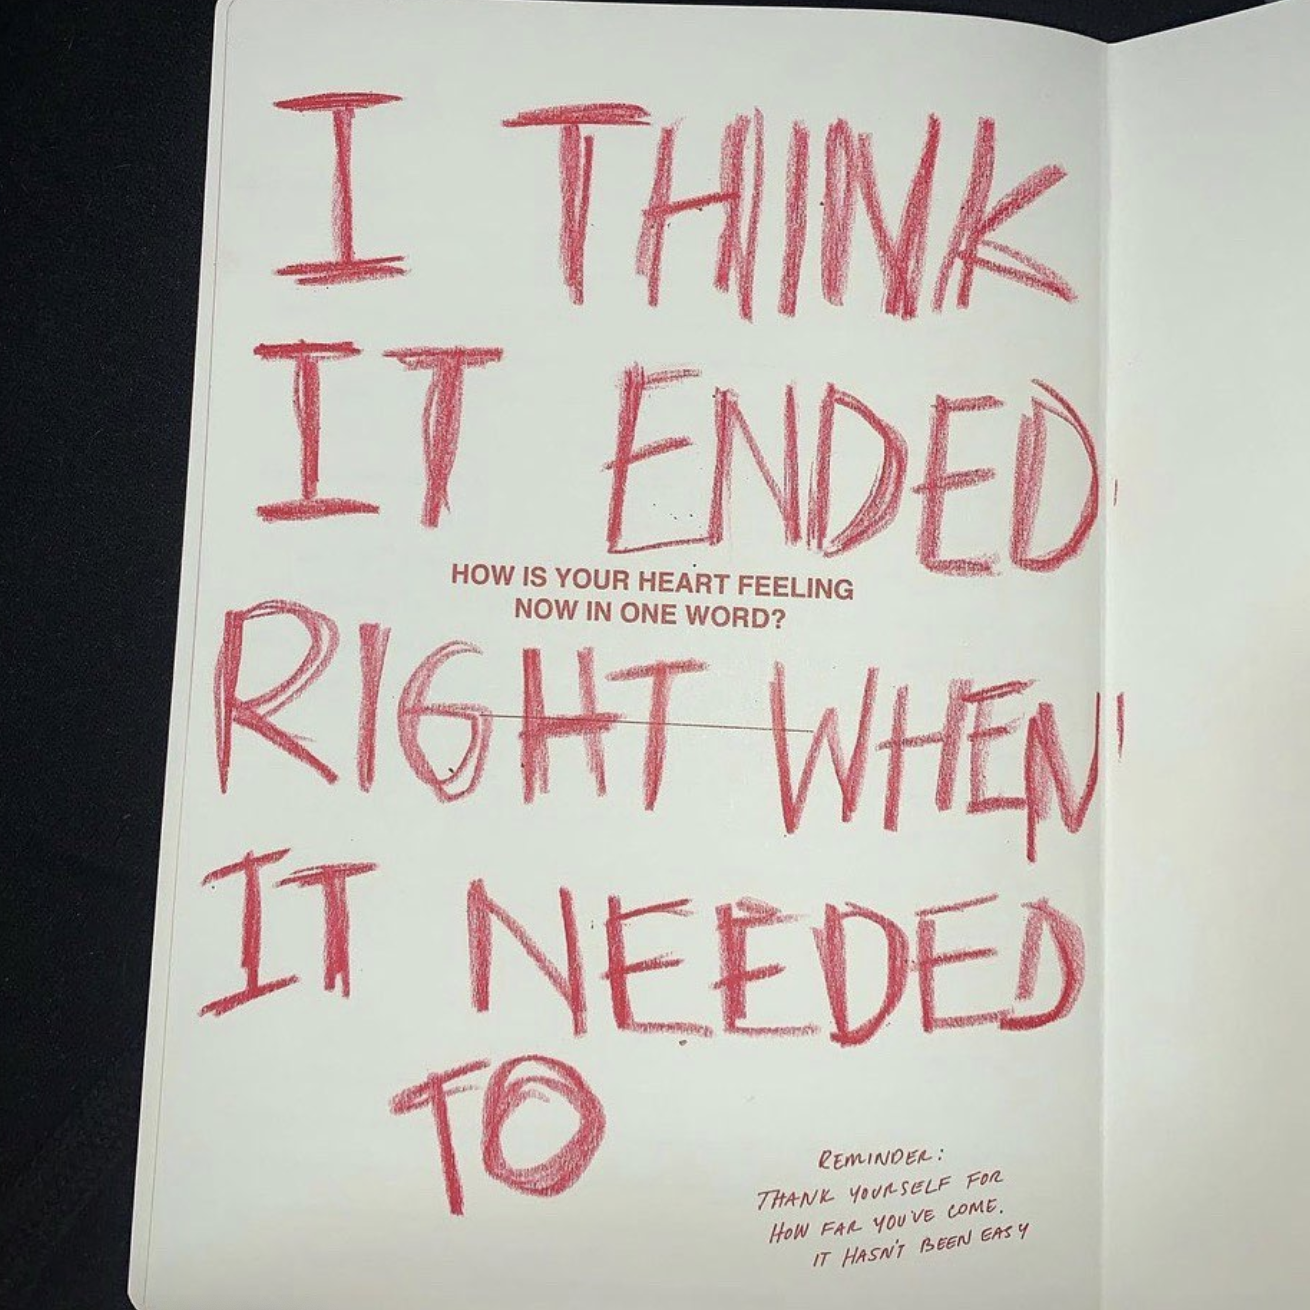 I THINK
IT ENDED
HOW IS YOUR HEART FEELING
NOW IN ONE WORD?
RIGHT WHEN
IT NEEDED
TO
REMINDER:
THANK YOURSELF FOR
HOW FAR YOU'VE COME.
IT HASN'T BEEN EASY